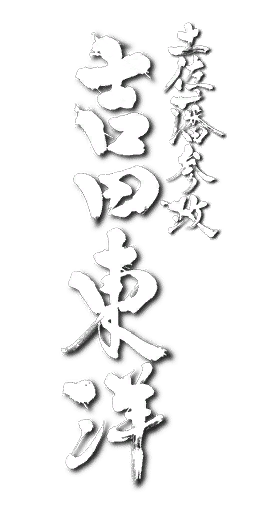 土佐藩参政
吉田東洋